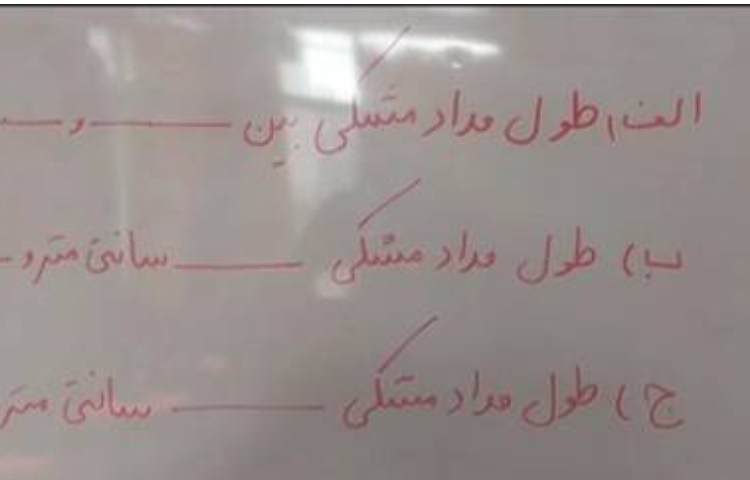 الف) طول مداد مشکی بین ــــــ و ــــــ
ب) طول مداد مشکی ــــــ سانتی متر و ــ
ج) طول مداد مشکی ــــــ سانتی متر